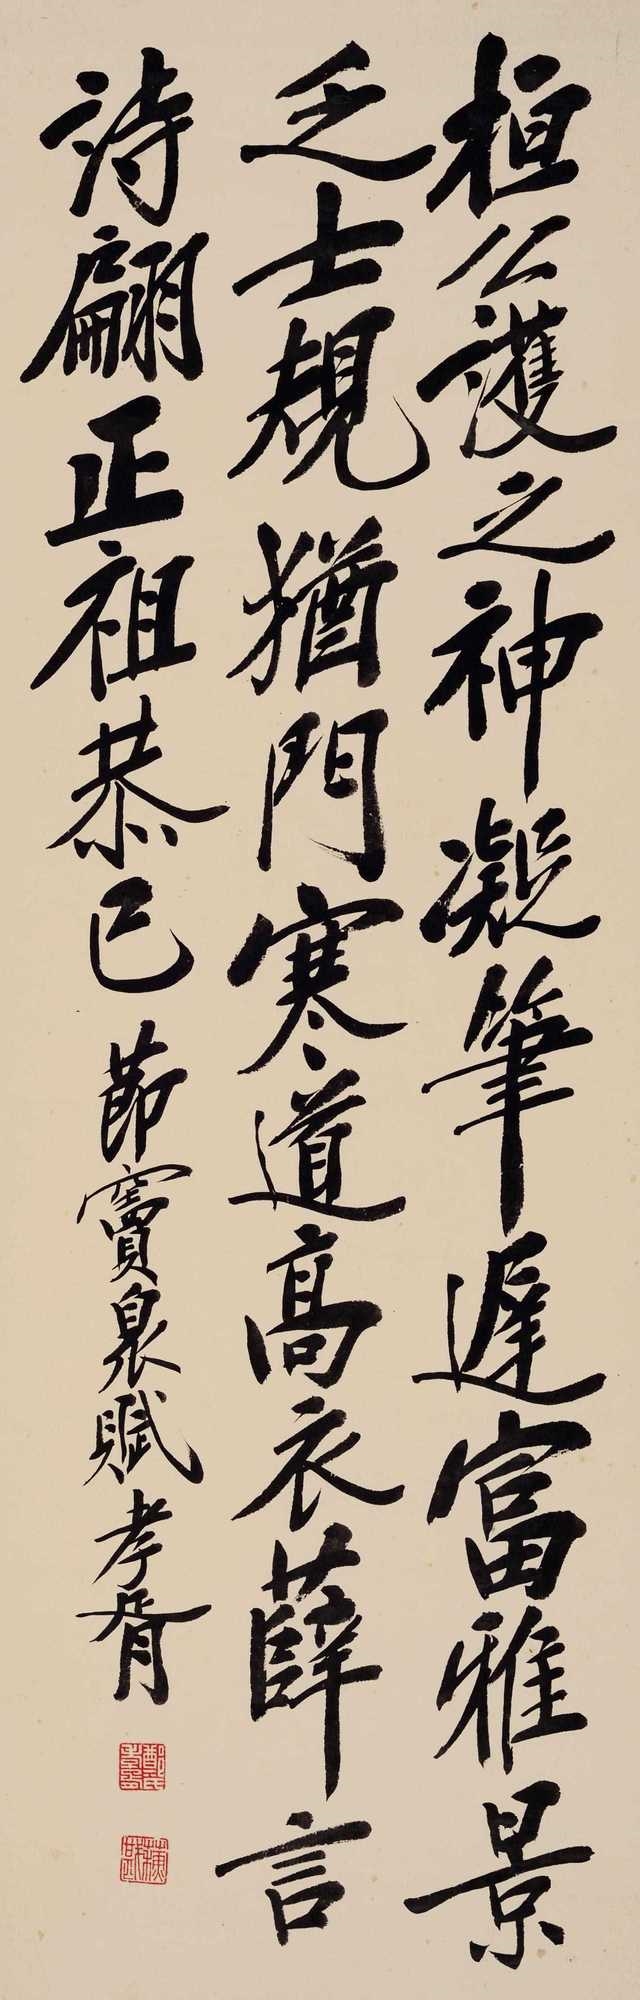 桓公護之神凝筆遲富雅景
乏士規猶門寒道高衣薜言
詩翩正祖恭己節竇臮賦孝胥